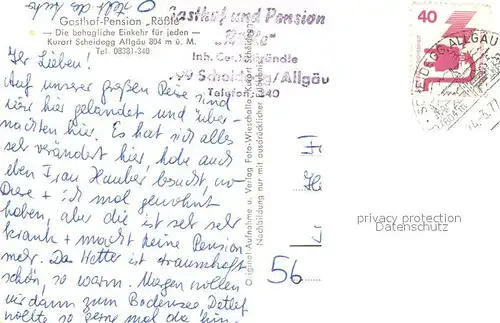 O steht das Auto
Gasthof-Pension „Rößle"
— Die behagliche Einkehr für jeden —
Kurort Scheidegg Allgäu 804 m ü. M.
Tel. 08381-340
Gasthof und Pension
"Rößle"
Scheidegg/Allgäu
Telefon 340
40
SCHEIDEGG, ALLGÄU
Ihr Lieben!
Auf unserer großen Reise sind
wir hier gelandet und über-
nachten hier. Es hat sich alles
sehr verändert hier, habe auch
eben Frau Hauber besucht, wo
Diese + ich mal gewohnt
haben, aber die ist sehr sehr
krank + macht keine Pension
mehr. Das Wetter ist traumhaft
schön, so warm. Morgen wollen
wir dann zum Bodensee, Detlef
wollte so gerne mal da hin
Original-Aufnahme u. Verlag Foto-Wieschalla, Kurort Scheidegg
Nachbildung nur mit ausdrücklicher
56
privacy protection
Datenschutz